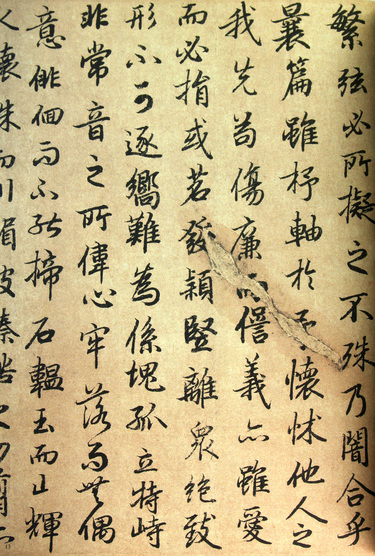 繁弦必所擬之不殊乃闇合乎
曩篇雖杼軸於予懷怵他人之
我先苟傷廉而僁義亦雖愛
而必捐或苕發穎竪離衆絶致
形不可逐嚮難為係塊孤立特峙
非常音之所偉心牢落而無偶
意俳佪而不能揥石韞玉而山輝
懷珠而川媚彼榛楛之勿